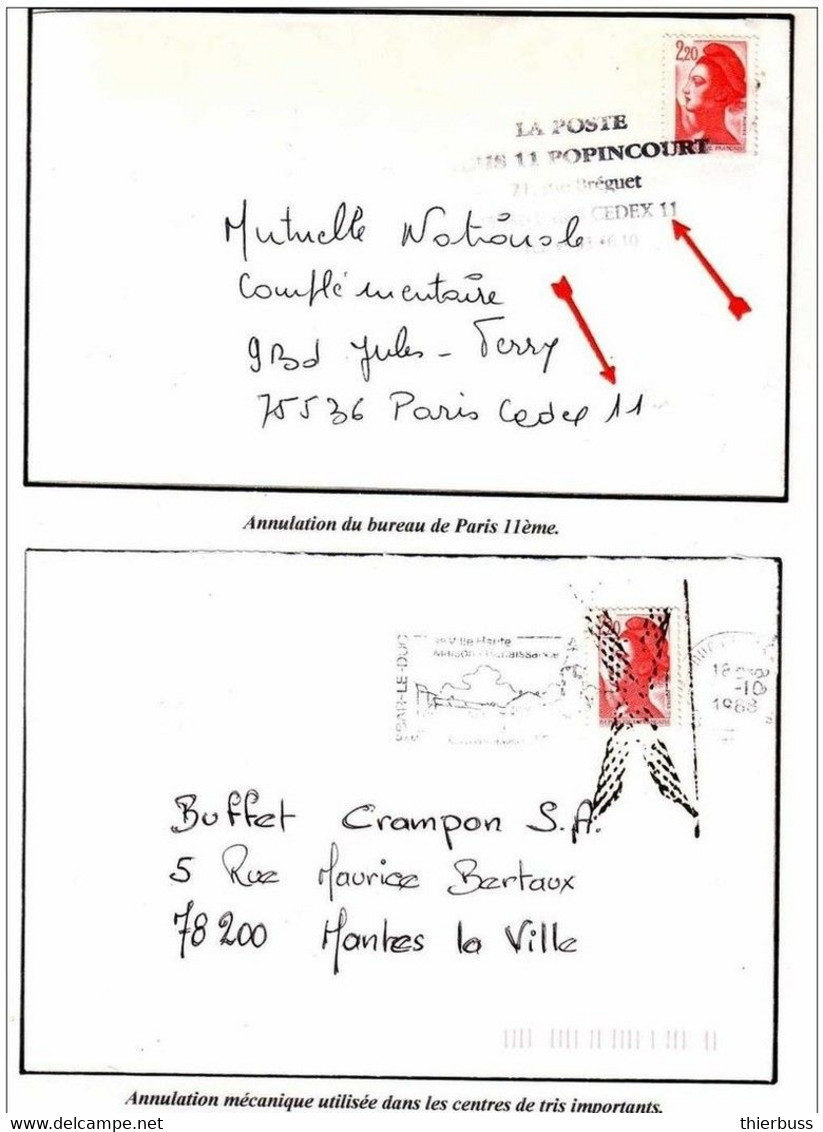 2,20
LA POSTE
11 POPINCOURT
21, rue Bréguet
CEDEX 11
Mutuelle Nationale
Complémentaire
9 Bd Jules-Ferry
75536 Paris Cedex 11
Annulation du bureau de Paris 11ème.
Ville Haute
BAR-LE-DUC
18
-10
1988
Buffet Crampon S.A.
5 Rue Maurice Bertaux
78200 Mantes la Ville
Annulation mécanique utilisée dans les centres de tris importants.
delcampe.net
thierbuss